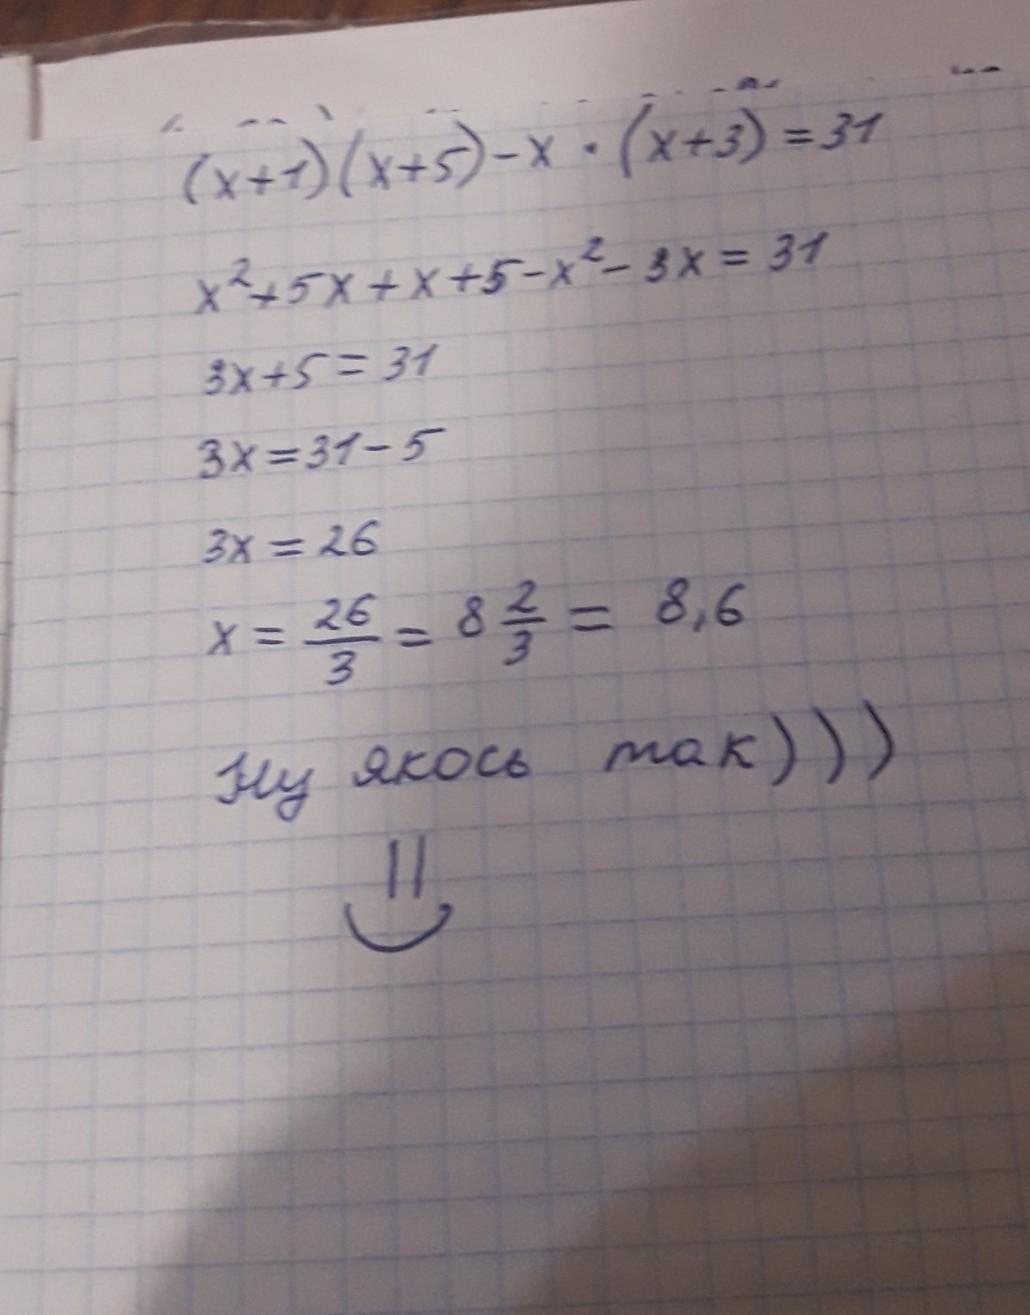 (x+1)(x+5)-x·(x+3)=31
x²+5x+x+5-x²-3x=31
3x+5=31
3x=31-5
3x=26
x=26/3=8 2/3=8,6
Ну якось так)))